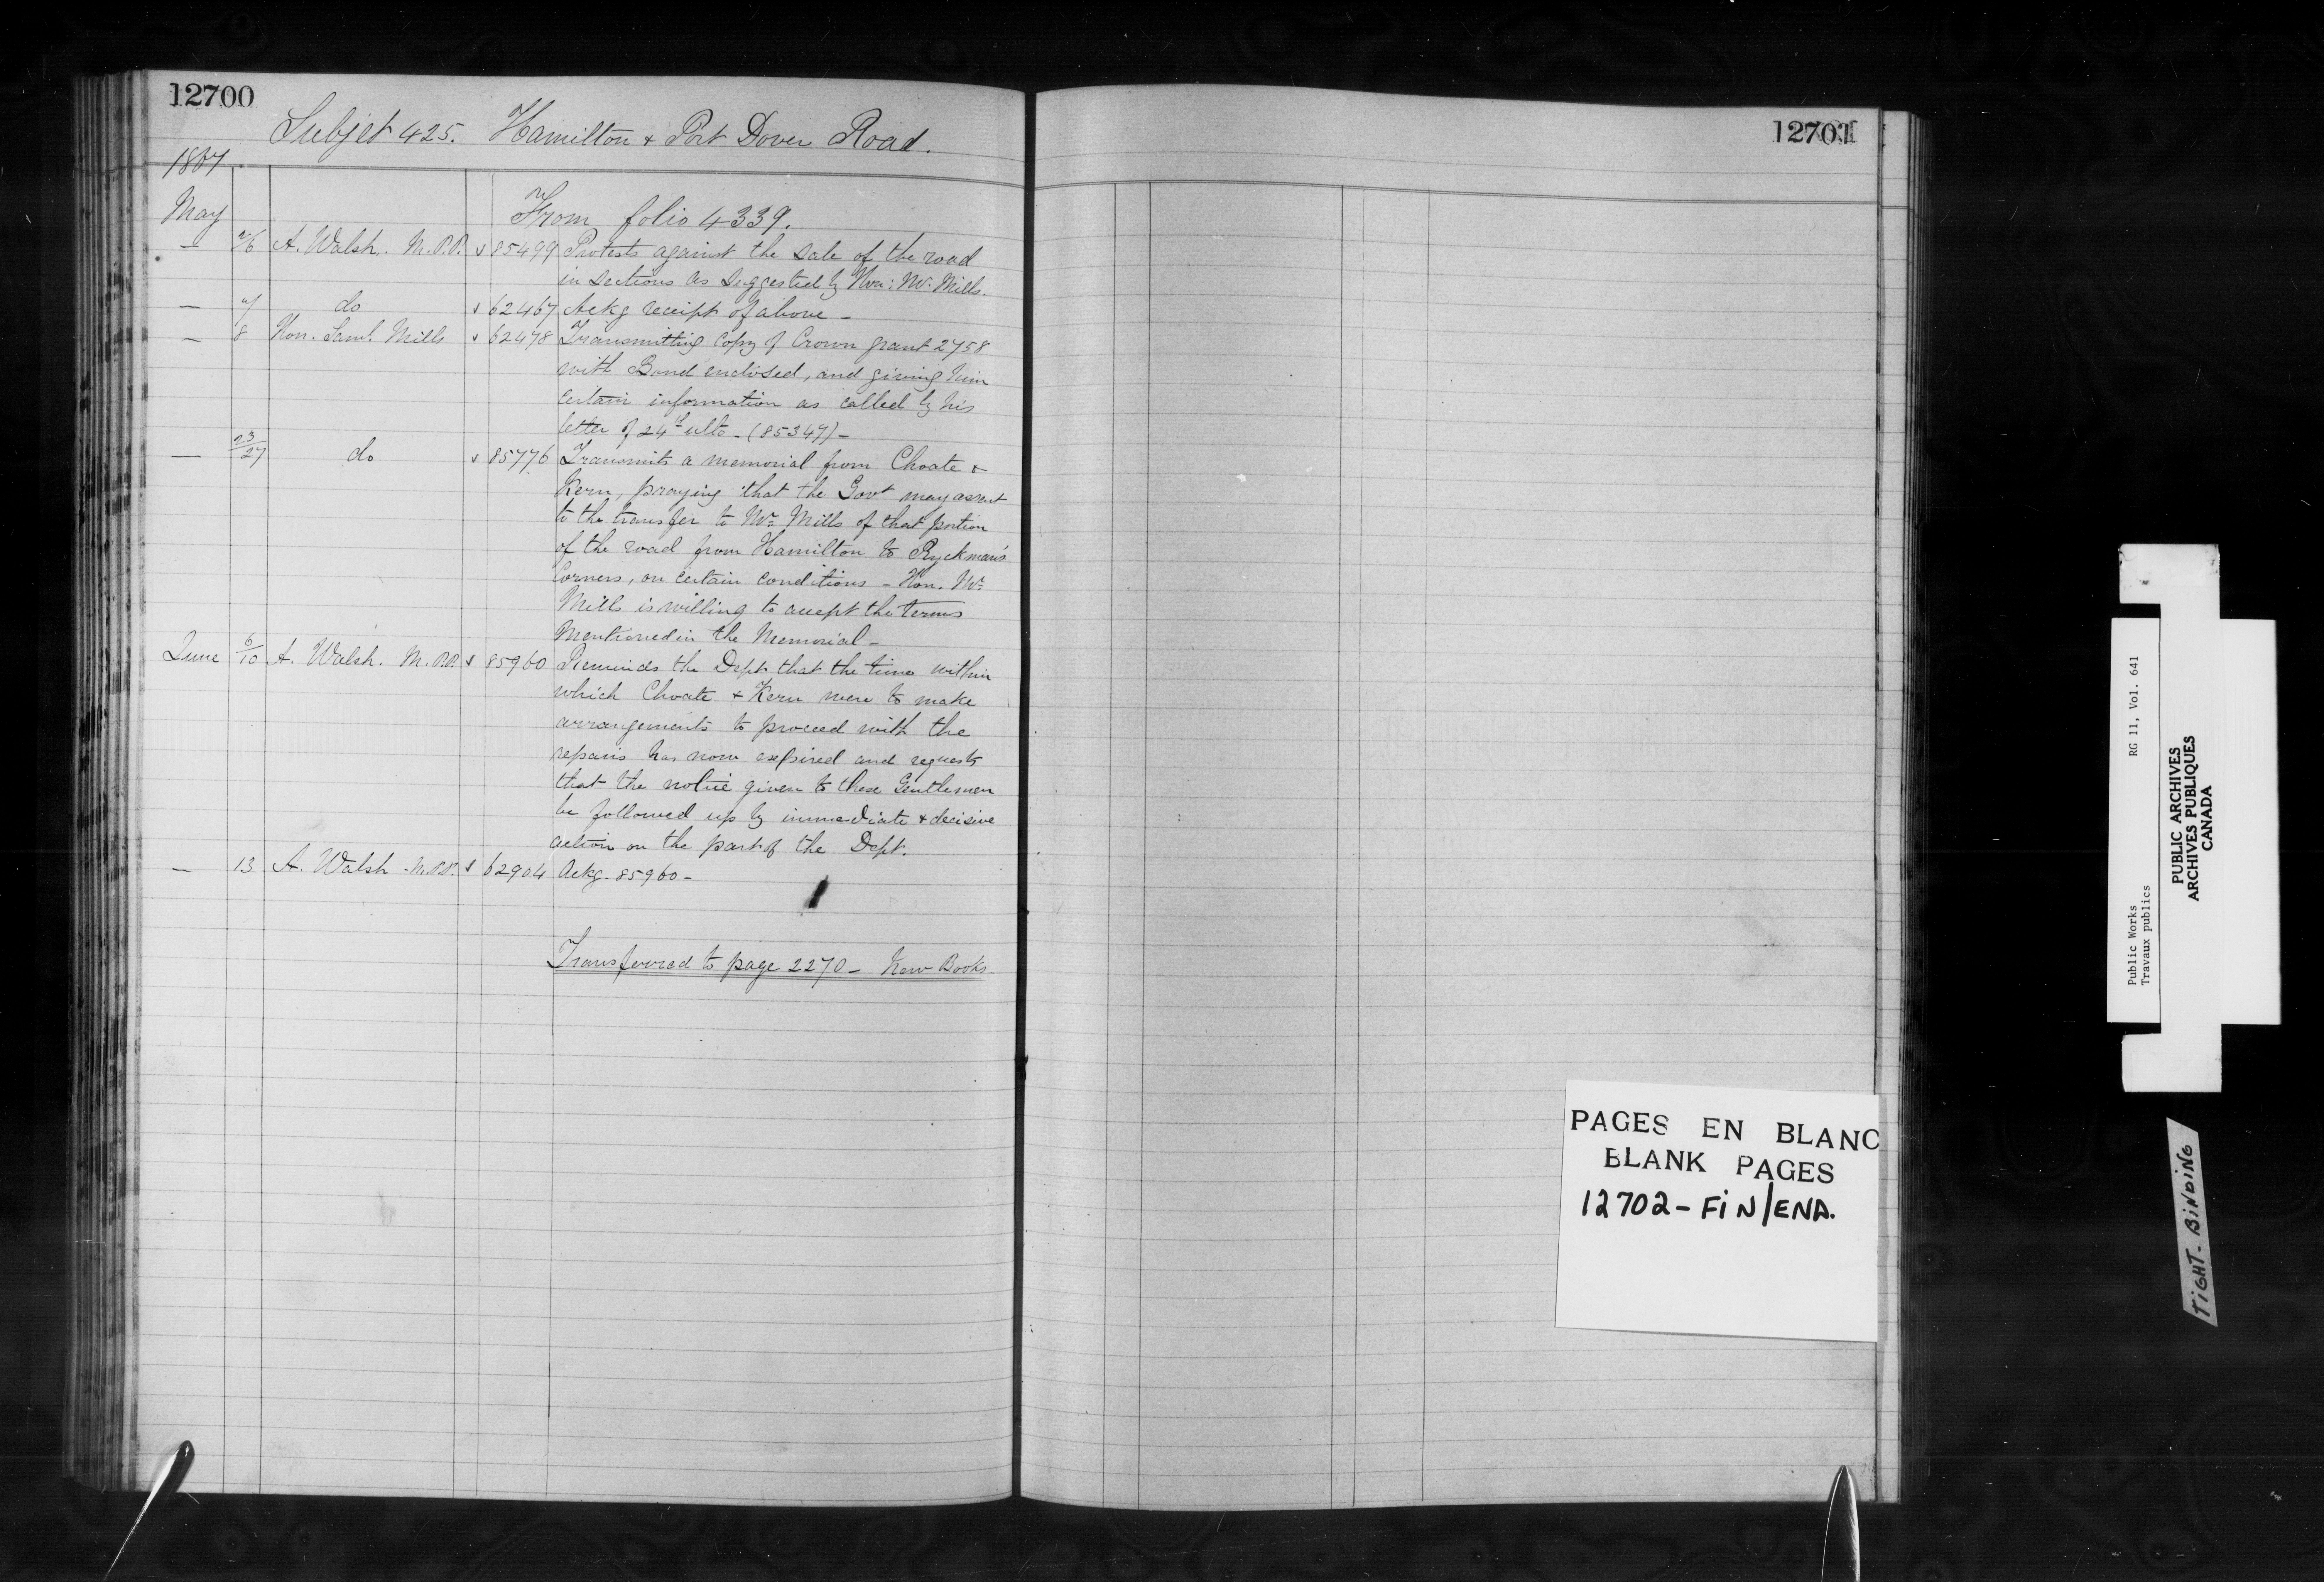 12700
Subject 425. Hamilton & Port Dover Road.
1867
May
From folio 4339.
— 2/6 A. Walsh. M.P.P. 85499 Protests against the sale of the road
in sections as suggested by Hon: Mr. Mills.
— 7 do 62467 Ackg receipt of above —
— 8 Hon. Saml. Mills 62478 Transmitting copy of Crown grant 2758
with Bond enclosed, and giving him
certain information as called by his
letter of 24th ulto - (85347) —
— 23/27 do 85776 Transmits a memorial from Choate &
Kern, praying that the Govt may assent
to the transfer to Mr. Mills of that portion
of the road from Hamilton to Ryckman's
Corners, on certain conditions — Hon. Mr.
Mills is willing to accept the terms
mentioned in the Memorial —
June 6/10 A. Walsh. M.P.P. 85960 Reminds the Dept that the time within
which Choate & Kern were to make
arrangements to proceed with the
repairs has now expired and requests
that the notice given to these Gentlemen
be followed up by immediate & decisive
action on the part of the Dept.
— 13 A. Walsh - M.P.P. 62904 Ackg. 85960 —
Transferred to page 2270 — New Books.
12701
PAGES EN BLANC
BLANK PAGES
12702 - FIN/END.
Public Works RG 11, Vol. 641
Travaux publics
PUBLIC ARCHIVES
ARCHIVES PUBLIQUES
CANADA
TIGHT. BINDING